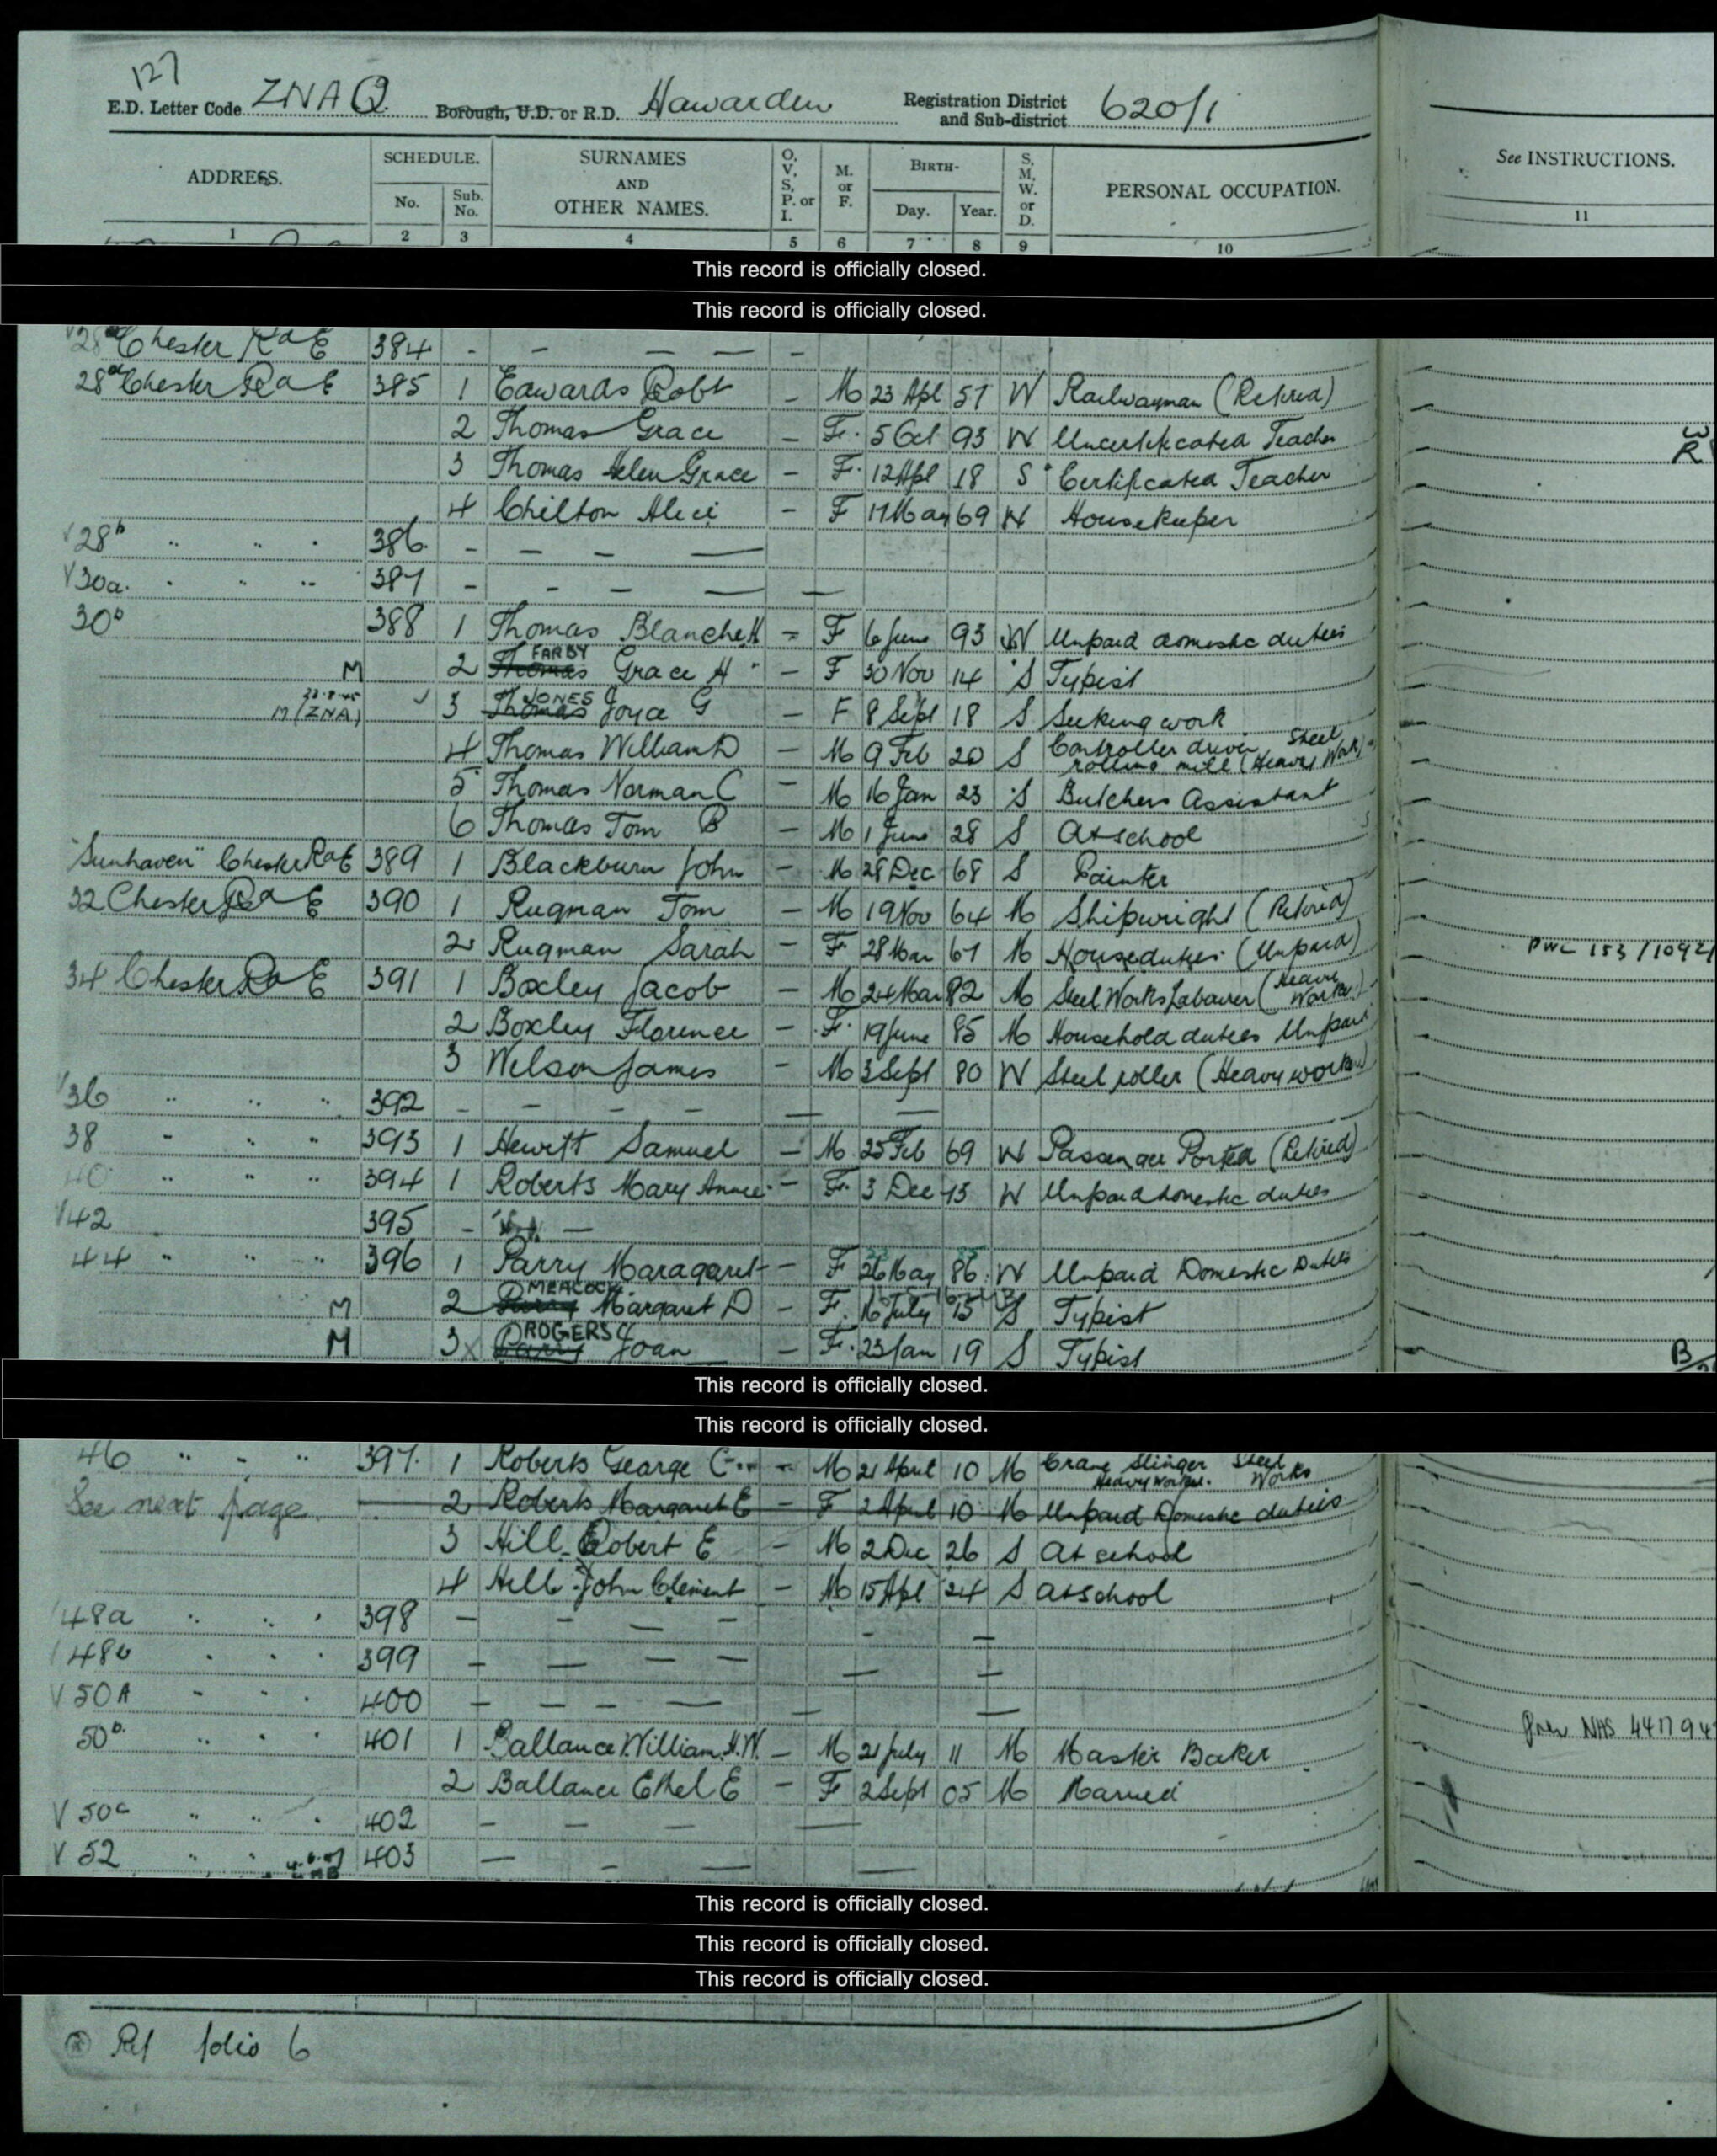 127
E.D. Letter Code ZNA Q. Borough, U.D. or R.D. Hawarden Registration District and Sub-district 620/1
ADDRESS. SCHEDULE. No. Sub. No. SURNAMES AND OTHER NAMES. O, V, S, P. or I. M. or F. BIRTH- Day. Year. S, M, W. or D. PERSONAL OCCUPATION. See INSTRUCTIONS.
1 2 3 4 5 6 7 8 9 10 11
This record is officially closed.
This record is officially closed.
Chester Rd E 384 - - - - -
28a Chester Rd E 385 1 Edwards Robt - M 23 Apl 51 W Railwayman (Retired)
2 Thomas Grace - F. 5 Oct 93 W Uncertificated Teacher
3 Thomas Helen Grace - F. 12 Apl 18 S Certificated Teacher
4 Chilton Alice - F 17 May 69 W Housekeeper
V28b " " " 386 - - - -
V30a. " " " 387 - - - - -
30b 388 1 Thomas Blanche H - F 6 June 93 W Unpaid domestic duties
M 2 Thomas FARBY Grace H - F 30 Nov 14 S Typist
M (ZNA) 3 Thomas JONES Joyce G - F 8 Sept 18 S Seeking work
4 Thomas William D - M 9 Feb 20 S Controller driver Steel rolling mill (Heavy Work)
5 Thomas Norman C - M 16 Jan 23 S Butchers Assistant
6 Thomas Tom B - M 1 June 28 S At school
"Sunhaven" Chester Rd E 389 1 Blackburn John - M 28 Dec 68 S Painter
32 Chester Rd E 390 1 Rugman Tom - M 19 Nov 64 M Shipwright (Retired)
2 Rugman Sarah - F 28 Mar 67 M House duties (Unpaid)
34 Chester Rd E 391 1 Boxley Jacob - M 24 Mar 82 M Steel Works Labourer (Heavy Worker)
2 Boxley Florence - F. 19 June 85 M Household duties Unpaid
3 Wilson James - M 3 Sept 80 W Steel roller (Heavy worker)
V36 " " " 392 - - - - - -
38 " " " 393 1 Hewitt Samuel - M 25 Feb 69 W Passenger Porter (Retired)
40 " " " 394 1 Roberts Mary Annie - F. 3 Dec 73 W Unpaid domestic duties
V42 395 - -
44 " " " 396 1 Parry Maragaret - F 26 May 86 W Unpaid Domestic Duties
M 2 Parry MEACOCK Margaret D - F. 16 July 15 S Typist
M 3 Parry ROGERS Joan - F. 23 Jan 19 S Typist
This record is officially closed.
This record is officially closed.
46 " " " 397 1 Roberts George C - M 21 April 10 M Crane Slinger Steel Works Heavy Worker.
See next page 2 Roberts Margaret E - F 2 April 10 M Unpaid Domestic duties
3 Hill Robert E - M 2 Dec 26 S At school
4 Hill John Clement - M 15 Apl 24 S At school
48a " " " 398 - - - - - -
48b " " " 399 - - - - - -
V 50A " " " 400 - - - - - -
50b " " " 401 1 Ballance William. H.W. - M 21 July 11 M Master Baker
2 Ballance Ethel E - F 2 Sept 05 M Married
V 50c " " " 402 - - - -
V 52 " " 403 - - - -
This record is officially closed.
This record is officially closed.
This record is officially closed.
Ref folio 6